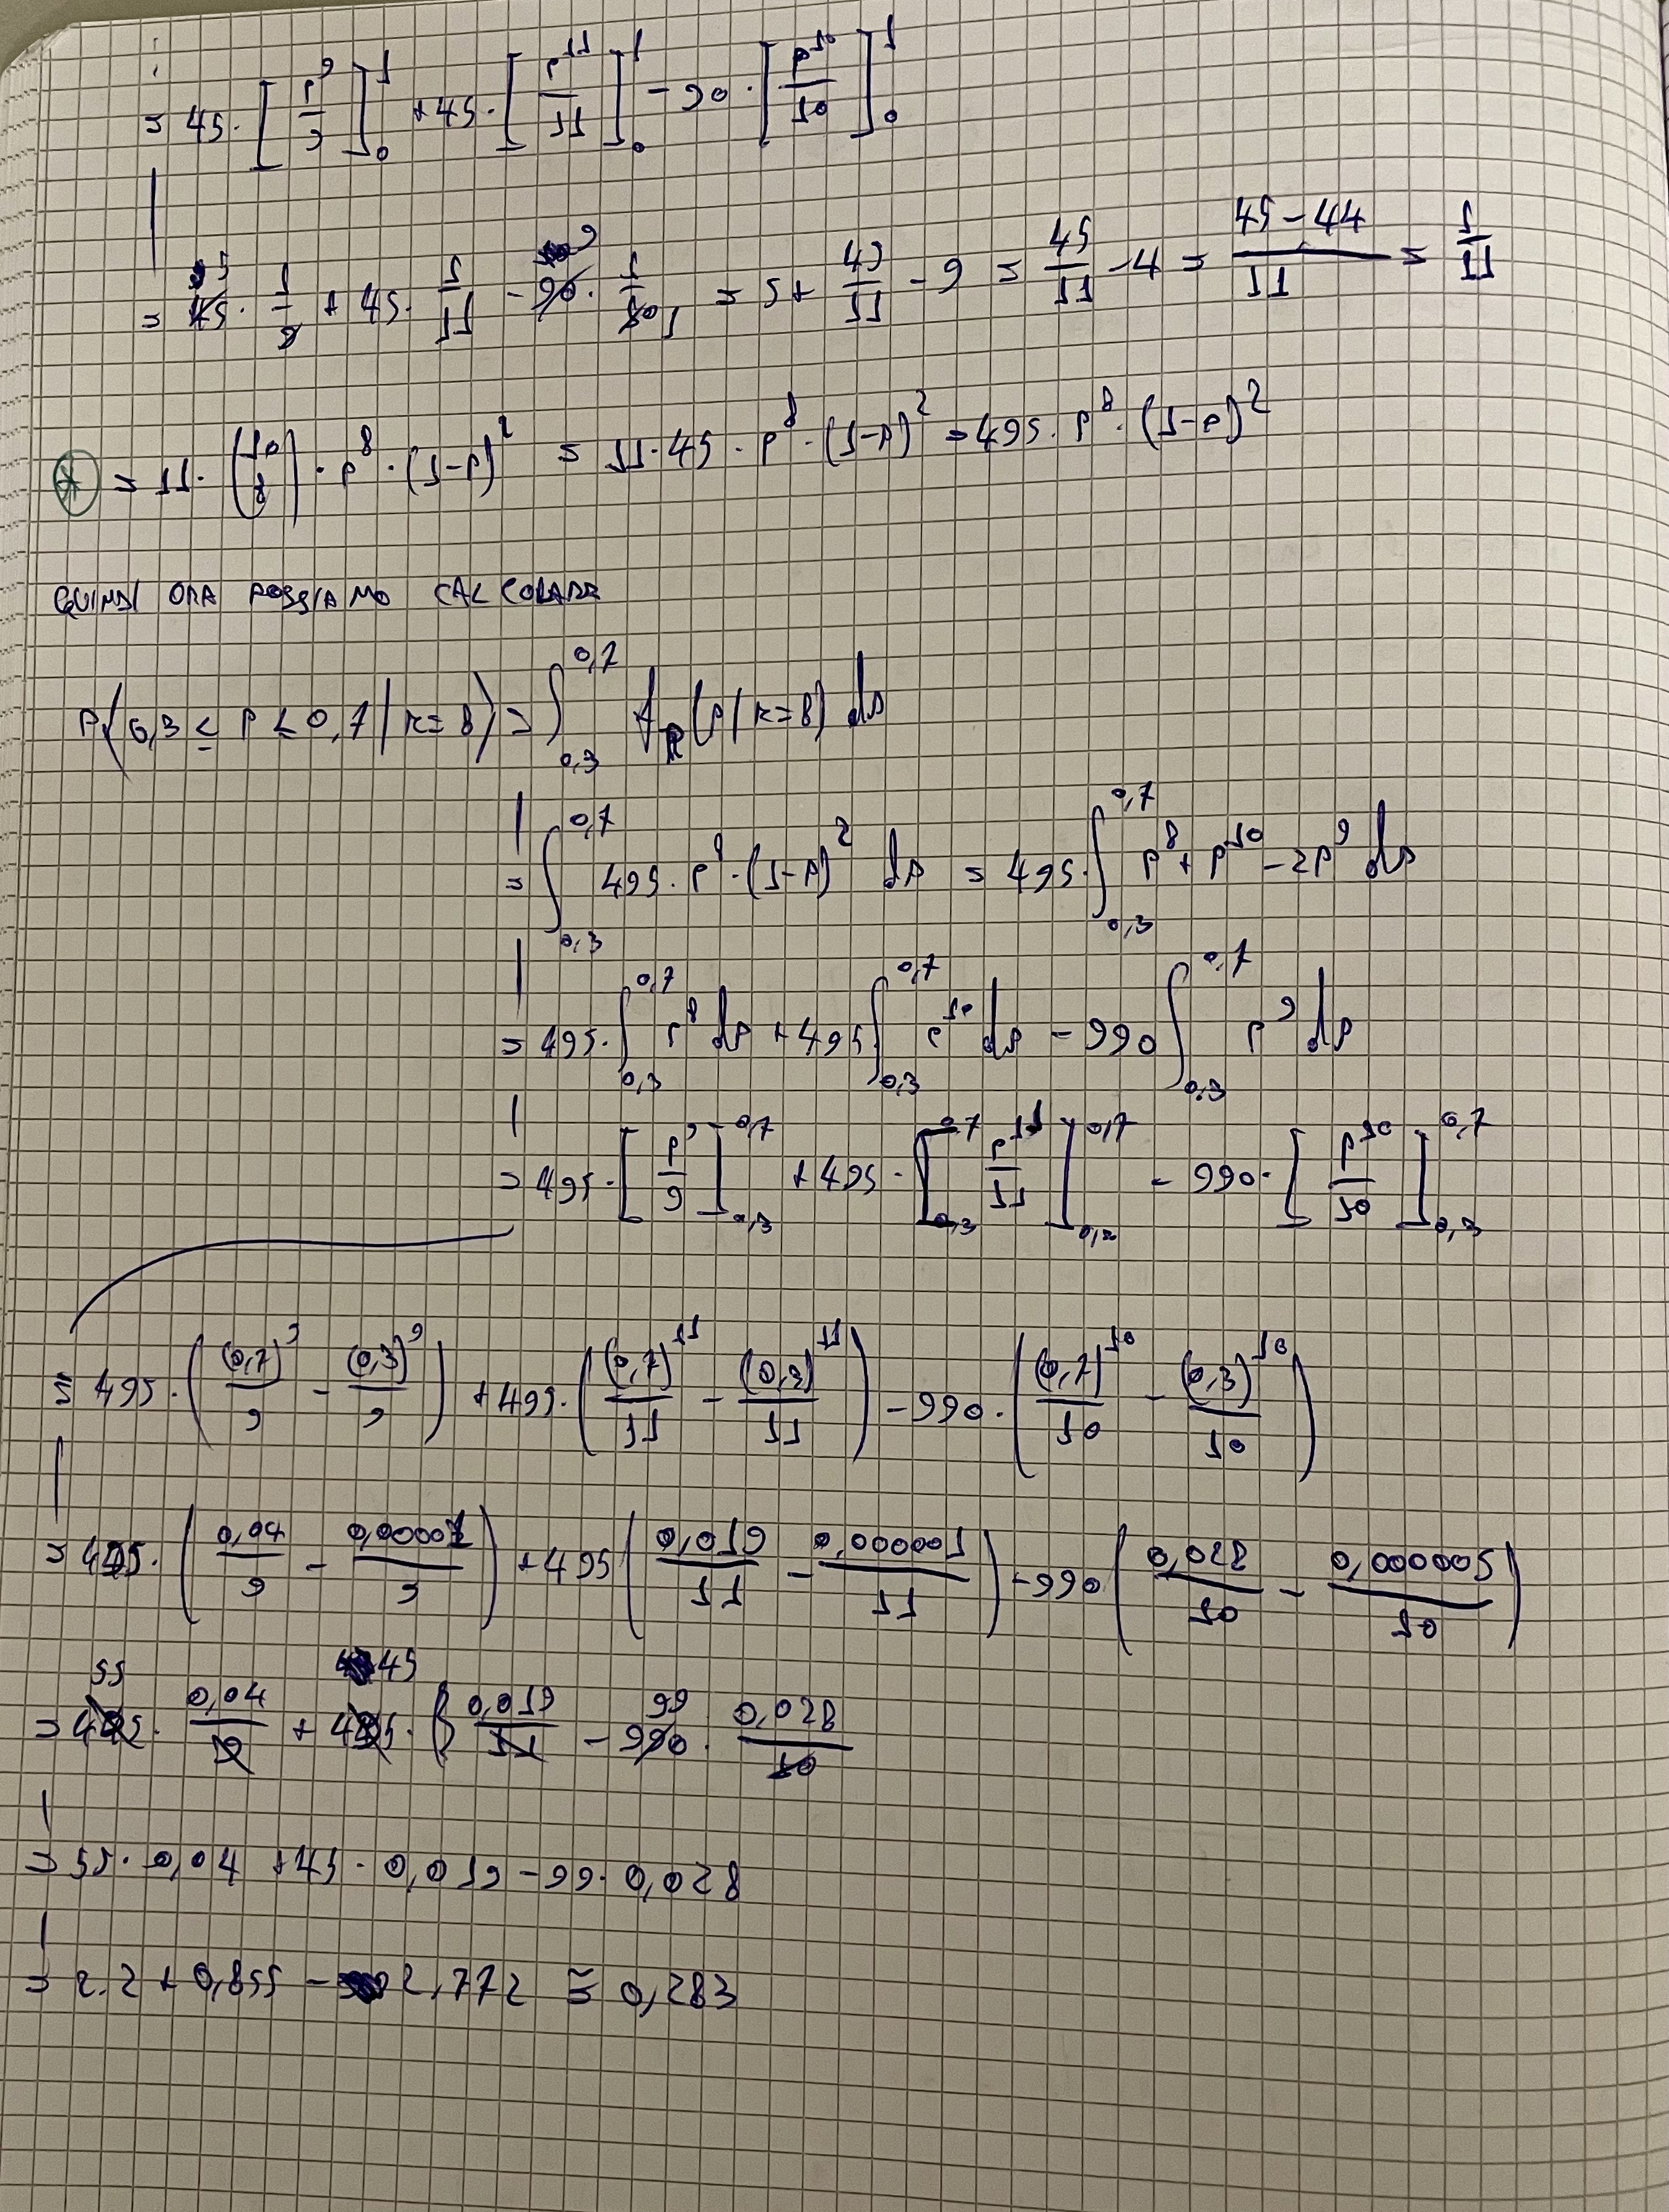 = 45 · [p⁹/9]₀¹ + 45 · [p¹¹/11]₀¹ − 90 · [p¹⁰/10]₀¹
= 45 · 1/9 + 45 · 1/11 − 90 · 1/10 = 5 + 45/11 − 9 = 45/11 − 4 = (45 − 44)/11 = 1/11
⊛ = 11 · (10 8) · p⁸ · (1−p)² = 11 · 45 · p⁸ · (1−p)² = 495 · p⁸ · (1−p)²
QUINDI ORA POSSIAMO CALCOLARE
P(0,3 ≤ P < 0,7 | K=8) = ∫_{0,3}^{0,7} f_P(p | K=8) dp
= ∫_{0,3}^{0,7} 495 · p⁸ · (1−p)² dp = 495 · ∫_{0,3}^{0,7} p⁸ + p¹⁰ − 2p⁹ dp
= 495 · ∫_{0,3}^{0,7} p⁸ dp + 495 ∫_{0,3}^{0,7} p¹⁰ dp − 990 ∫_{0,3}^{0,7} p⁹ dp
= 495 · [p⁹/9]_{0,3}^{0,7} + 495 · [p¹¹/11]_{0,3}^{0,7} − 990 · [p¹⁰/10]_{0,3}^{0,7}
= 495 · ((0,7)⁹/9 − (0,3)⁹/9) + 495 · ((0,7)¹¹/11 − (0,3)¹¹/11) − 990 · ((0,7)¹⁰/10 − (0,3)¹⁰/10)
= 495 · (0,04/9 − 0,00001/9) + 495 (0,019/11 − 0,000001/11) − 990 (0,028/10 − 0,000005/10)
55 45 99
= 495 · 0,04/9 + 495 · 0,019/11 − 990 · 0,028/10
= 55 · 0,04 + 45 · 0,019 − 99 · 0,028
= 2.2 + 0,855 − 2,772 ≅ 0,283